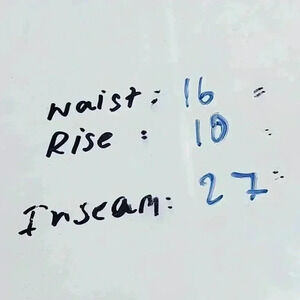 Waist: 16 "
Rise: 10 "
Inseam: 27 "